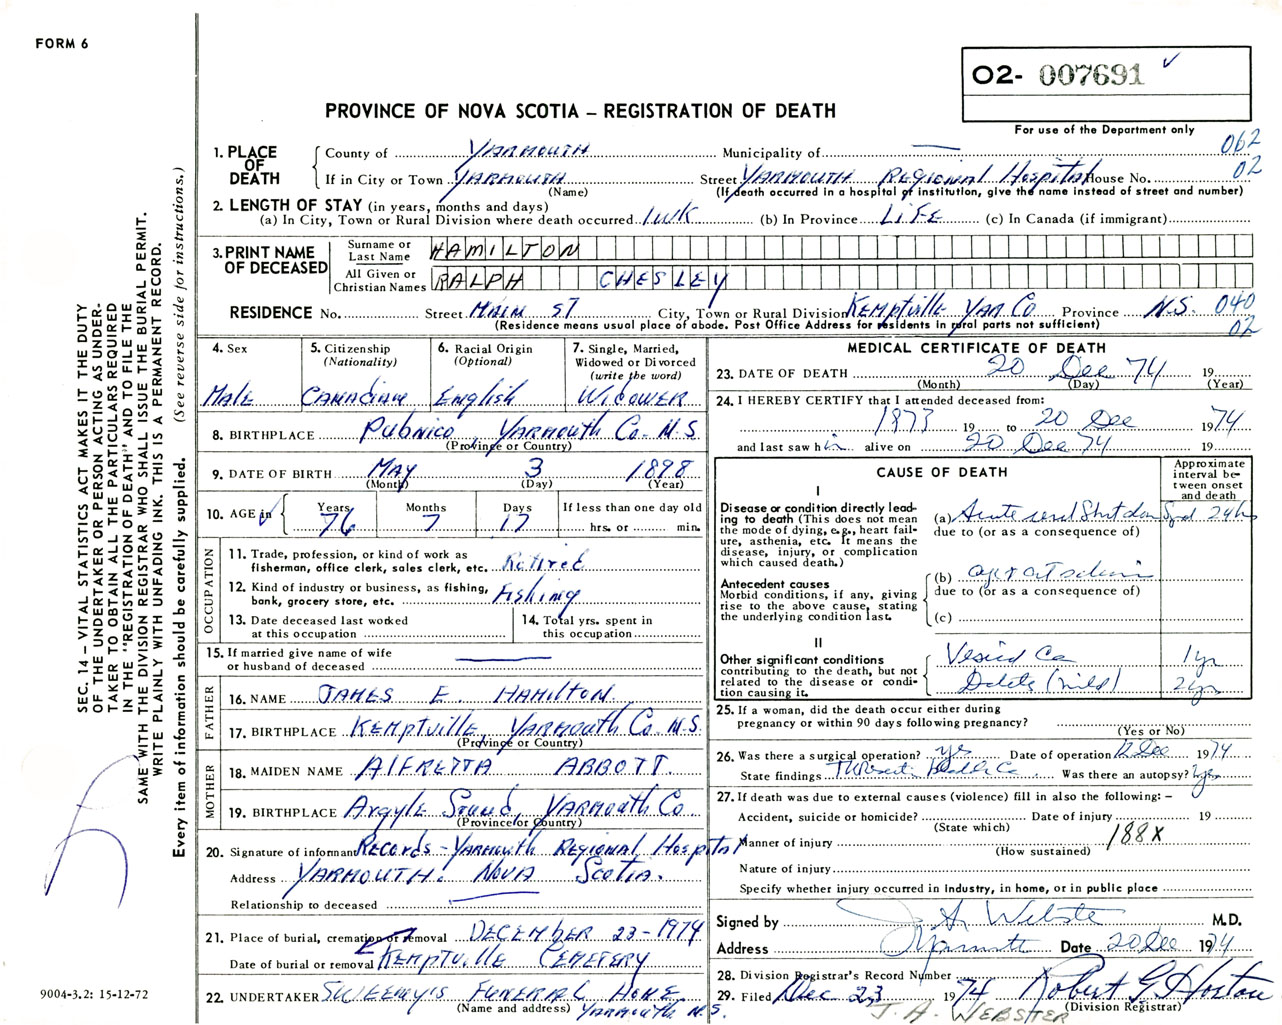 FORM 6
O2- 007691
PROVINCE OF NOVA SCOTIA – REGISTRATION OF DEATH
For use of the Department only
062
02
1. PLACE OF DEATH
County of YARMOUTH Municipality of —
If in City or Town YARMOUTH Street YARMOUTH REGIONAL HOSPITAL House No.
(Name) (If death occurred in a hospital or institution, give the name instead of street and number)
2. LENGTH OF STAY (in years, months and days)
(a) In City, Town or Rural Division where death occurred 1 WK (b) In Province LIFE (c) In Canada (if immigrant)
3. PRINT NAME OF DECEASED
Surname or Last Name HAMILTON
All Given or Christian Names RALPH CHESLEY
RESIDENCE No. Street MAIN ST City, Town or Rural Division Kemptville YAR Co Province N.S. 040
(Residence means usual place of abode. Post Office Address for residents in rural parts not sufficient) 02
4. Sex
MALE
5. Citizenship
(Nationality)
CANADIAN
6. Racial Origin
(Optional)
English
7. Single, Married, Widowed or Divorced
(write the word)
WIDOWER
8. BIRTHPLACE Pubnico, YARMOUTH Co. N.S
(Province or Country)
9. DATE OF BIRTH MAY 3 1898
(Month) (Day) (Year)
10. AGE in
Years Months Days If less than one day old
76 7 17 hrs. or min.
OCCUPATION
11. Trade, profession, or kind of work as fisherman, office clerk, sales clerk, etc. Retired
12. Kind of industry or business, as fishing, bank, grocery store, etc. Fishing
13. Date deceased last worked at this occupation
14. Total yrs. spent in this occupation
15. If married give name of wife or husband of deceased —
FATHER
16. NAME JAMES E. HAMILTON.
17. BIRTHPLACE KEMPTVILLE, YARMOUTH Co. N.S.
(Province or Country)
MOTHER
18. MAIDEN NAME AlFRETTA ABBOTT.
19. BIRTHPLACE Argyle Sound, YARMOUTH Co
(Province or Country)
20. Signature of informant RECORDS - YARMOUTH REGIONAL HOSPITAL
Address YARMOUTH. NOVA SCOTIA.
Relationship to deceased —
21. Place of burial, cremation or removal DECEMBER 23-1974
Date of burial or removal KEMPTVILLE CEMETERY
22. UNDERTAKER SWEENY'S FUNERAL HOME
(Name and address) YARMOUTH N.S.
MEDICAL CERTIFICATE OF DEATH
23. DATE OF DEATH 20 Dec 74 19
(Month) (Day) (Year)
24. I HEREBY CERTIFY that I attended deceased from:
1873 19 to 20 Dec 1974
and last saw him alive on 20 Dec 74 19
CAUSE OF DEATH
Approximate interval between onset and death
I
Disease or condition directly leading to death (This does not mean the mode of dying, e.g., heart failure, asthenia, etc. It means the disease, injury, or complication which caused death.)
(a) Acute renal Shutdown 24 hrs
due to (or as a consequence of)
Antecedent causes
Morbid conditions, if any, giving rise to the above cause, stating the underlying condition last.
(b)
due to (or as a consequence of)
(c)
II
Other significant conditions contributing to the death, but not related to the disease or condition causing it.
Vesical Ca 1 yr
(mild) 2 yrs
25. If a woman, did the death occur either during pregnancy or within 90 days following pregnancy?
(Yes or No)
26. Was there a surgical operation? yes Date of operation 12 Dec 1974
State findings TUResection Bladder Ca Was there an autopsy?
27. If death was due to external causes (violence) fill in also the following: –
Accident, suicide or homicide? Date of injury 19
(State which)
Manner of injury 188X
(How sustained)
Nature of injury
Specify whether injury occurred in Industry, in home, or in public place
Signed by J. A. Webster M.D.
Address Yarmouth Date 20 Dec 1974
28. Division Registrar's Record Number
29. Filed Dec 23 1974 Robert G Horton
(Division Registrar)
J. A. WEBSTER
SEC. 14 – VITAL STATISTICS ACT MAKES IT THE DUTY
OF THE UNDERTAKER OR PERSON ACTING AS UNDER-
TAKER TO OBTAIN ALL THE PARTICULARS REQUIRED
IN THE "REGISTRATION OF DEATH" AND TO FILE THE
SAME WITH THE DIVISION REGISTRAR WHO SHALL ISSUE THE BURIAL PERMIT.
WRITE PLAINLY WITH UNFADING INK. THIS IS A PERMANENT RECORD.
Every item of information should be carefully supplied. (See reverse side for instructions.)
9004-3.2: 15-12-72